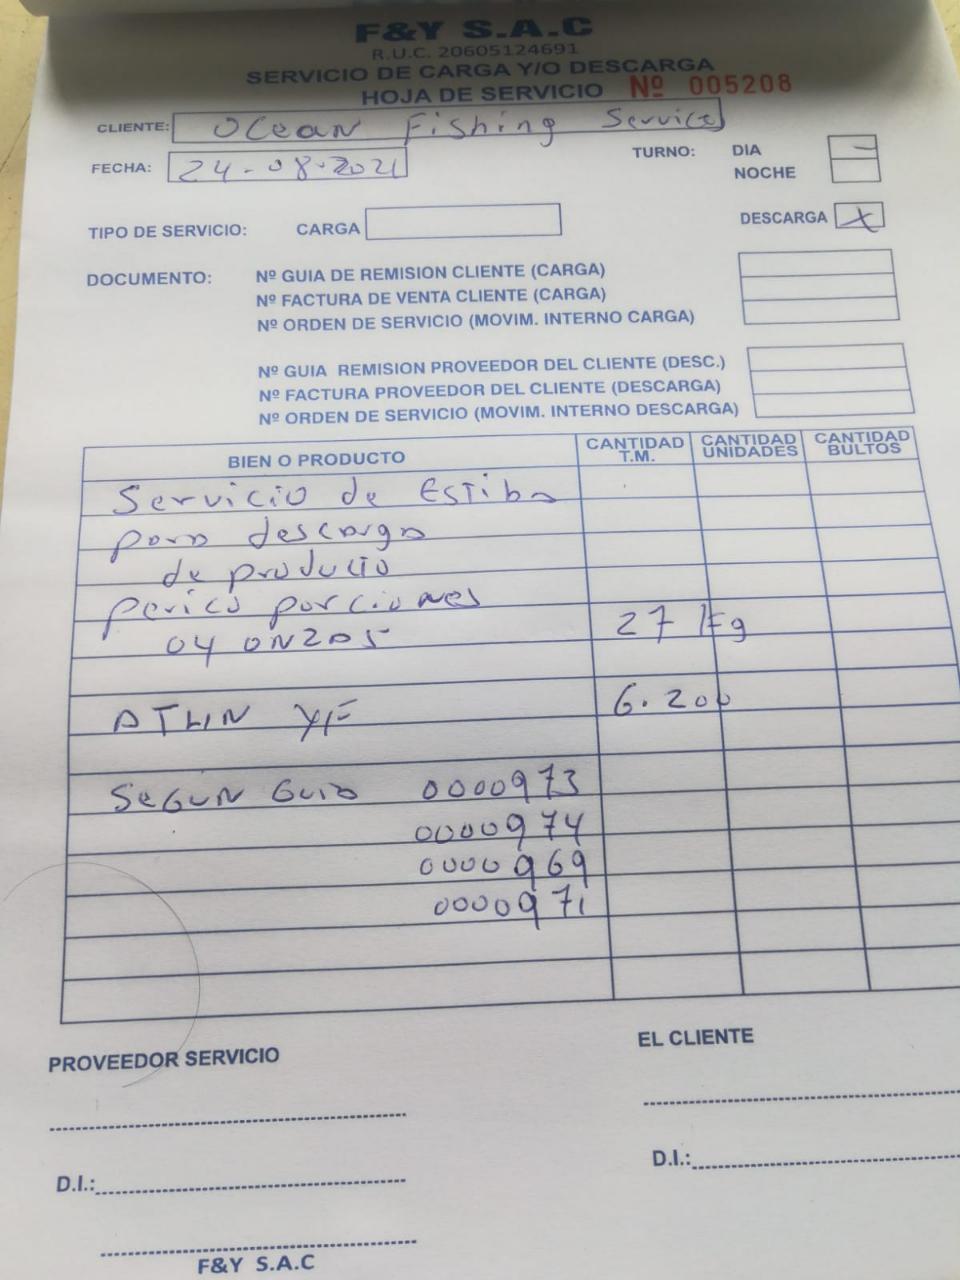 F&Y S.A.C
R.U.C. 20605124691
SERVICIO DE CARGA Y/O DESCARGA
HOJA DE SERVICIO Nº 005208
CLIENTE: Ocean Fishing Service
FECHA: 24-08-2021
TURNO: DIA
NOCHE
TIPO DE SERVICIO: CARGA
DESCARGA X
DOCUMENTO: Nº GUIA DE REMISION CLIENTE (CARGA)
Nº FACTURA DE VENTA CLIENTE (CARGA)
Nº ORDEN DE SERVICIO (MOVIM. INTERNO CARGA)
Nº GUIA REMISION PROVEEDOR DEL CLIENTE (DESC.)
Nº FACTURA PROVEEDOR DEL CLIENTE (DESCARGA)
Nº ORDEN DE SERVICIO (MOVIM. INTERNO DESCARGA)
BIEN O PRODUCTO CANTIDAD T.M. CANTIDAD UNIDADES CANTIDAD BULTOS
Servicio de Estiba
para descarga
de producto
perico porciones
04 ONZAS 27 Kg
ATUN YF 6.200
SEGUN GUIA 0000973
0000974
0000969
0000971
PROVEEDOR SERVICIO
EL CLIENTE
D.I.:
D.I.:
F&Y S.A.C